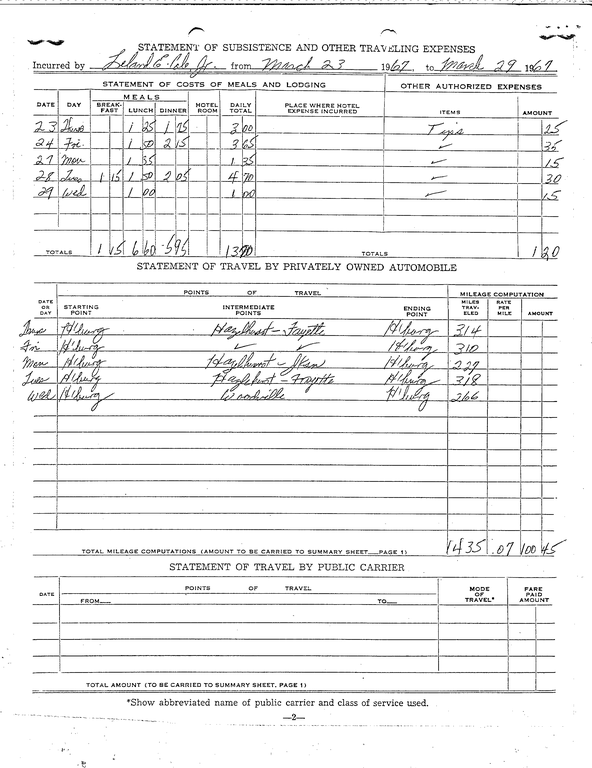 STATEMENT OF SUBSISTENCE AND OTHER TRAVELING EXPENSES
Incurred by Leland E. Cole Jr. from March 23 1967 to March 29 1967
STATEMENT OF COSTS OF MEALS AND LODGING OTHER AUTHORIZED EXPENSES
DATE DAY MEALS BREAK-FAST LUNCH DINNER HOTEL ROOM DAILY TOTAL PLACE WHERE HOTEL EXPENSE INCURRED ITEMS AMOUNT
23 Thurs 1 25 1 75 3 00 Tips 25
24 Fri 1 50 2 15 3 65 ✓ 35
27 Mon 1 35 1 35 ✓ 15
28 Tues 1 15 1 50 2 05 4 70 ✓ 30
29 Wed 1 00 1 00 ✓ 15
TOTALS 1 15 6 60 5 95 13 70 TOTALS 1 20
STATEMENT OF TRAVEL BY PRIVATELY OWNED AUTOMOBILE
POINTS OF TRAVEL MILEAGE COMPUTATION
DATE OR DAY STARTING POINT INTERMEDIATE POINTS ENDING POINT MILES TRAV-ELED RATE PER MILE AMOUNT
Thurs H'burg Hazlehurst - Fayette H'burg 314
Fri H'burg ✓ ✓ H'burg 310
Mon H'burg Hazlehurst - H'burg 227
Tues H'burg Hazlehurst - Fayette H'burg 318
Wed H'burg Woodville H'burg 266
TOTAL MILEAGE COMPUTATIONS (AMOUNT TO BE CARRIED TO SUMMARY SHEET—PAGE 1) 1435 .07 100 45
STATEMENT OF TRAVEL BY PUBLIC CARRIER
DATE POINTS OF TRAVEL FROM— TO— MODE OF TRAVEL* FARE PAID AMOUNT
TOTAL AMOUNT (TO BE CARRIED TO SUMMARY SHEET, PAGE 1)
*Show abbreviated name of public carrier and class of service used.
—2—